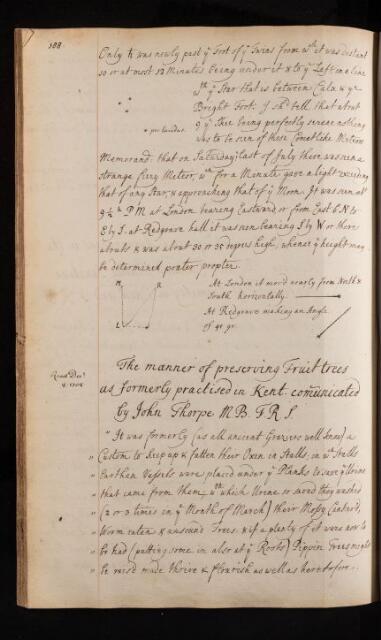 108
Only ♄ was newly past yᵉ Foot of yᵉ Twins from wᶜʰ it was distant
10 or at most 12 Minutes being under it & to yᵉ Left in a line
wᵗʰ yᵉ Star that is between Calx & yᵉ
Bright Foot: I shᵈ tell, that about
9 yᵉ Skie being perfectly serene nothing
was to be seen of these Comet like Meteors
Memorand: that on Saturday last of July there was seen a
strange fiery Meteor, wᶜʰ for a Minute gave a light exceeding
that of any Star, & approaching that of yᵉ Moon. It was seen at
9½ʰ P M at London bearing Eastward or from E 6 N to
E by S. at Redgrave hall it was seen bearing S by W or there
abouts & was about 30 or 35 degrees high, whence yᵉ height may
be determined præter propter.
At London it mov'd nearly from North to
South horizontally.
At Redgrave making an Angle
of 40 gr.
N R
L
Read Decʳ
The manner of preserving Fruit trees
as formerly practised in Kent. com̃unicated
by John Thorpe M.B. F R S
" It was formerly (as all ancient Graziers well know) a
" Custom to keep up & fatten their Oxen in Stalls, in wᶜʰ Stalls
" Earthen Vessels were placed under yᵉ Planks to save yᵉ Urine
" that came from them, wᵗʰ which Urine so saved they washed
" (2 or 3 times in yᵉ Month of March) their Mossy, Canker'd,
" Worm eaten & unsound Trees. & if a plenty of it were now to
" be had (putting some in also at yᵉ Roots) Pippin Trees might
" be rais'd made thrive & flourish as well as heretofore.